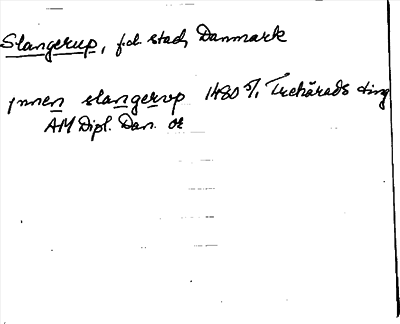 Slangerup, f.d. stad, Danmark
ynnen slangerop 1480 5/1 Trehärads ting
AM Dipl. Dan. or